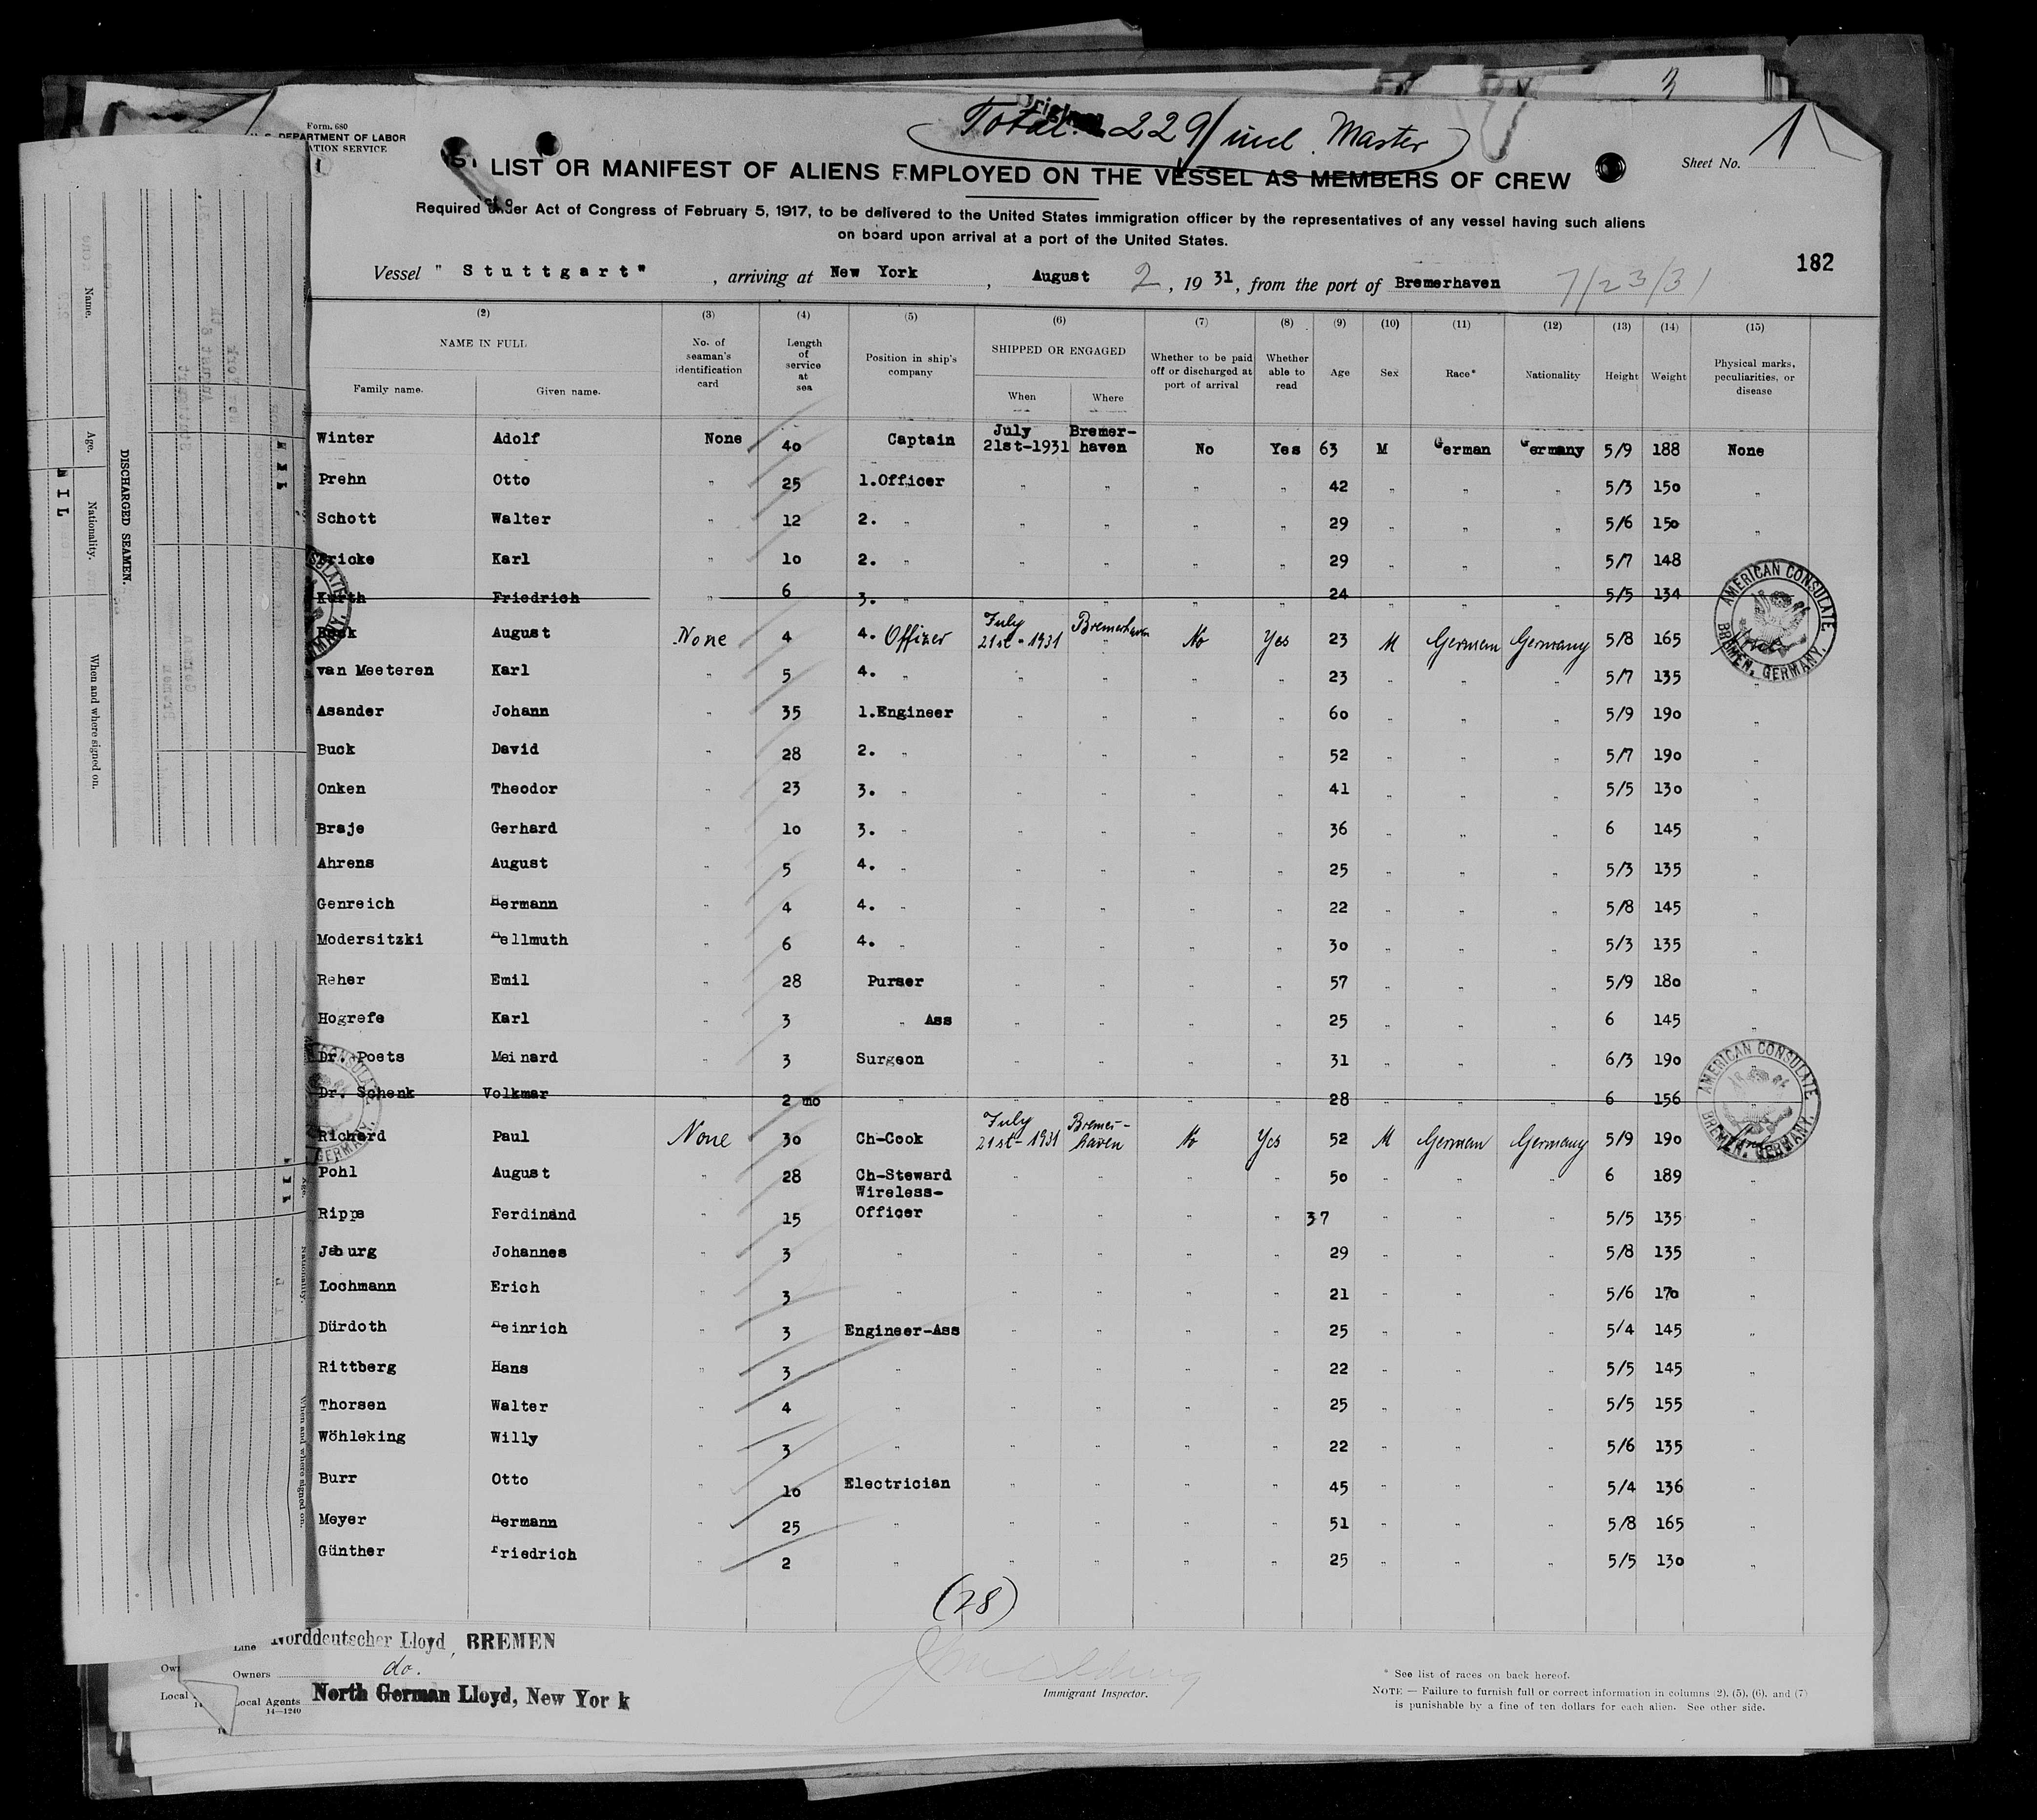 Form. 680
U. S. DEPARTMENT OF LABOR
Total 229/ incl. Master
Sheet No. 1
LIST OR MANIFEST OF ALIENS EMPLOYED ON THE VESSEL AS MEMBERS OF CREW
Required under Act of Congress of February 5, 1917, to be delivered to the United States immigration officer by the representatives of any vessel having such aliens
on board upon arrival at a port of the United States.
182
Vessel " Stuttgart" , arriving at New York , August 2 , 19 31, from the port of Bremerhaven 7/23/31
(2) (3) (4) (5) (6) (7) (8) (9) (10) (11) (12) (13) (14) (15)
NAME IN FULL No. of seaman's identification card Length of service at sea Position in ship's company SHIPPED OR ENGAGED Whether to be paid off or discharged at port of arrival Whether able to read Age Sex Race* Nationality Height Weight Physical marks, peculiarities, or disease
Family name. Given name. When Where
Winter Adolf None 40 Captain July 21st-1931 Bremer-haven No Yes 63 M German Germany 5/9 188 None
Prehn Otto " 25 1.Officer " " " " 42 " " " 5/3 150 "
Schott Walter " 12 2. " " " " " 29 " " " 5/6 150 "
Fricke Karl " 10 2. " " " " " 29 " " " 5/7 148 "
Kurth Friedrich " 6 3. " " " " " 24 " " " 5/5 134
August None 4 4. Offizer July 21st-1931 Bremerhaven No Yes 23 M German Germany 5/8 165
van Meeteren Karl " 5 4. " " " " " 23 " " " 5/7 135 "
Asander Johann " 35 1.Engineer " " " " 60 " " " 5/9 190 "
Buck David " 28 2. " " " " " 52 " " " 5/7 190 "
Onken Theodor " 23 3. " " " " " 41 " " " 5/5 130 "
Braje Gerhard " 10 3. " " " " " 36 " " " 6 145 "
Ahrens August " 5 4. " " " " " 25 " " " 5/3 135 "
Genreich Hermann " 4 4. " " " " " 22 " " " 5/8 145 "
Modersitzki Hellmuth " 6 4. " " " " " 30 " " " 5/3 135 "
Reher Emil " 28 Purser " " " " 57 " " " 5/9 180 "
Hogrefe Karl " 3 " Ass " " " " 25 " " " 6 145 "
Dr. Poets Meinard " 3 Surgeon " " " " 31 " " " 6/3 190
Dr. Schenk Volkmar " 2 mo " " " " " 28 " " " 6 156 "
Richard Paul None 30 Ch-Cook July 21st-1931 Bremer-haven No Yes 52 M German Germany 5/9 190
Pohl August " 28 Ch-Steward " " " " 50 " " " 6 189 "
Ripps Ferdinand " 15 Wireless-Officer " " " " 37 " " " 5/5 135 "
Jaburg Johannes " 3 " " " " " 29 " " " 5/8 135 "
Lochmann Erich " 3 " " " " " 21 " " " 5/6 170 "
Dürdoth Heinrich " 3 Engineer-Ass " " " " 25 " " " 5/4 145 "
Rittberg Hans " 3 " " " " " 22 " " " 5/5 145 "
Thorsen Walter " 4 " " " " " 25 " " " 5/5 155 "
Wöhleking Willy " 3 " " " " " 22 " " " 5/6 135 "
Burr Otto " 10 Electrician " " " " 45 " " " 5/4 136 "
Meyer Hermann " 25 " " " " " 51 " " " 5/8 165 "
Günther Friedrich " 2 " " " " " 25 " " " 5/5 130 "
(28)
AMERICAN CONSULATE
BREMEN, GERMANY.
AMERICAN CONSULATE
BREMEN, GERMANY.
Line Norddeutscher Lloyd, BREMEN
Owners do.
Local Agents North German Lloyd, New York
14—1240
Immigrant Inspector.
* See list of races on back hereof.
NOTE — Failure to furnish full or correct information in columns (2), (5), (6), and (7)
is punishable by a fine of ten dollars for each alien. See other side.
DISCHARGED SEAMEN.
Name. Age. Nationality. When and where signed on.